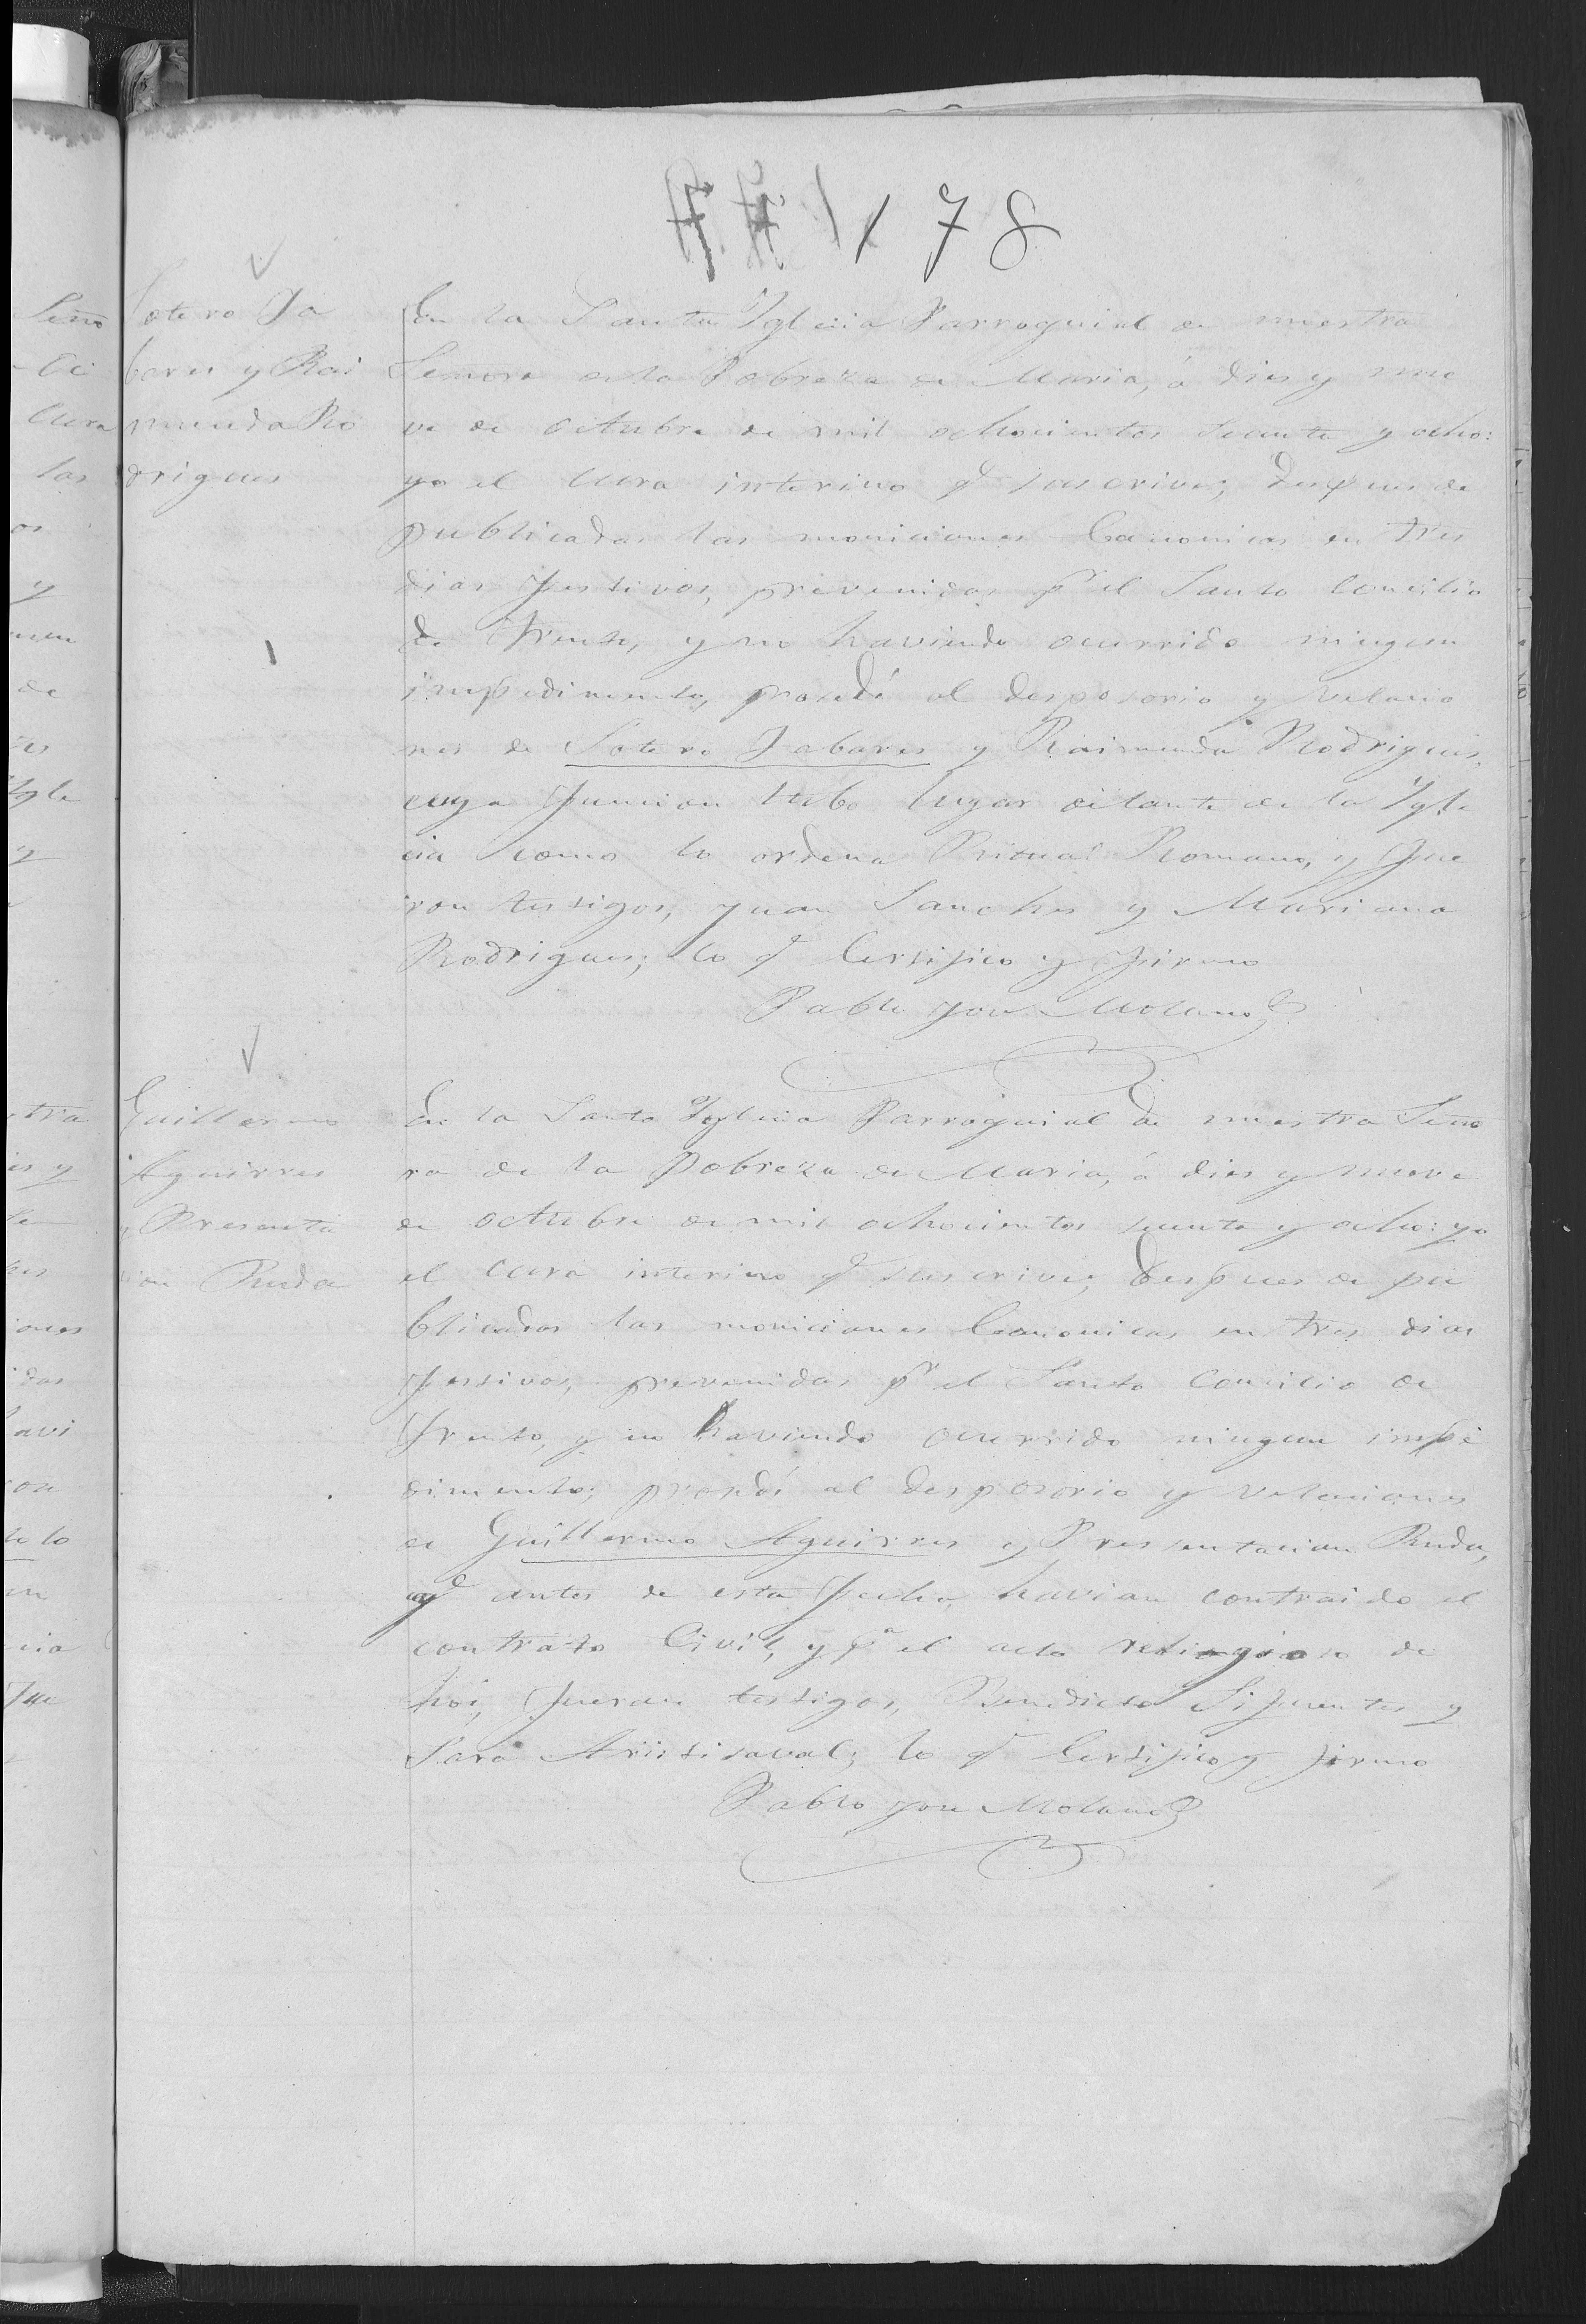 178
Sotero Ta
bares y Rai
munda Ro
drigues
En la Santa Yglecia Parroquial de nuestra
Señora de la Pobreza de Maria, á dies y nue
ve de octubre de mil ochocientos secenta y ocho:
yo el cura interino q.e suscrive; despues de
publicadas las moniciones Canonicas en tres
dias festivos, prevenidas p.r el Santo Concilio
de Trento, y no haviendo ocurrido ningun
impedimento, procedí al desposorio y velacio
nes de Sotero Tabares y Raimunda Rodrigues,
cuya funcion tubo lugar delante de la Ygle
cia como lo ordena Ritual Romano, y fue
ron testigos, Juan Sanches y Mariana
Rodrigues; lo q.e Certifico y firmo
Pablo José Molano
Guillermo
Aguirres
y Presenta
cion Ruda
En la Santa Yglecia Parroquial de nuestra Seño
ra de la Pobreza de Maria, á dies y nueve
de octubre de mil ochocientos secenta y ocho: yo
el cura interino q.e suscrive; despues de pu
blicadas las moniciones Canonicas en tres dias
festivos, prevenidas p.r el Santo Concilio de
Trento, y no haviendo ocurrido ningun impe
dimento; procedí al desposorio y velaciones
de Guillermo Aguirres y Pressentacion Ruda,
q.e antes de esta fecha, havian contraido el
contrato Civil, y p.a el acto religioso de
hoi, fueron testigos, Benedicto Sifuentes y
Sara Aristisaval; lo q.e Certifico y firmo
Pablo José Molano